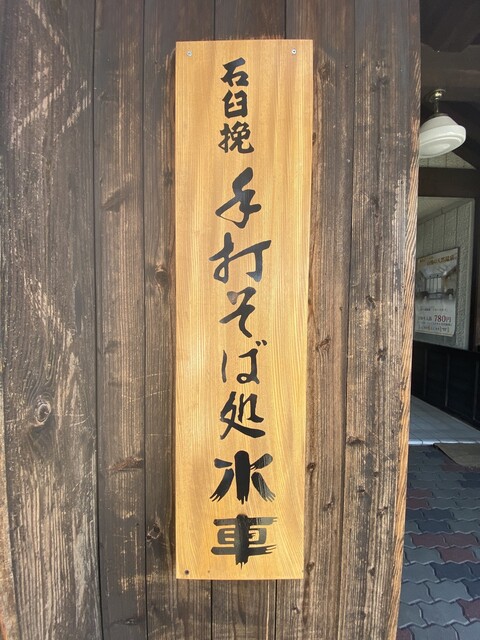 石臼挽 手打そば処 水車
780円